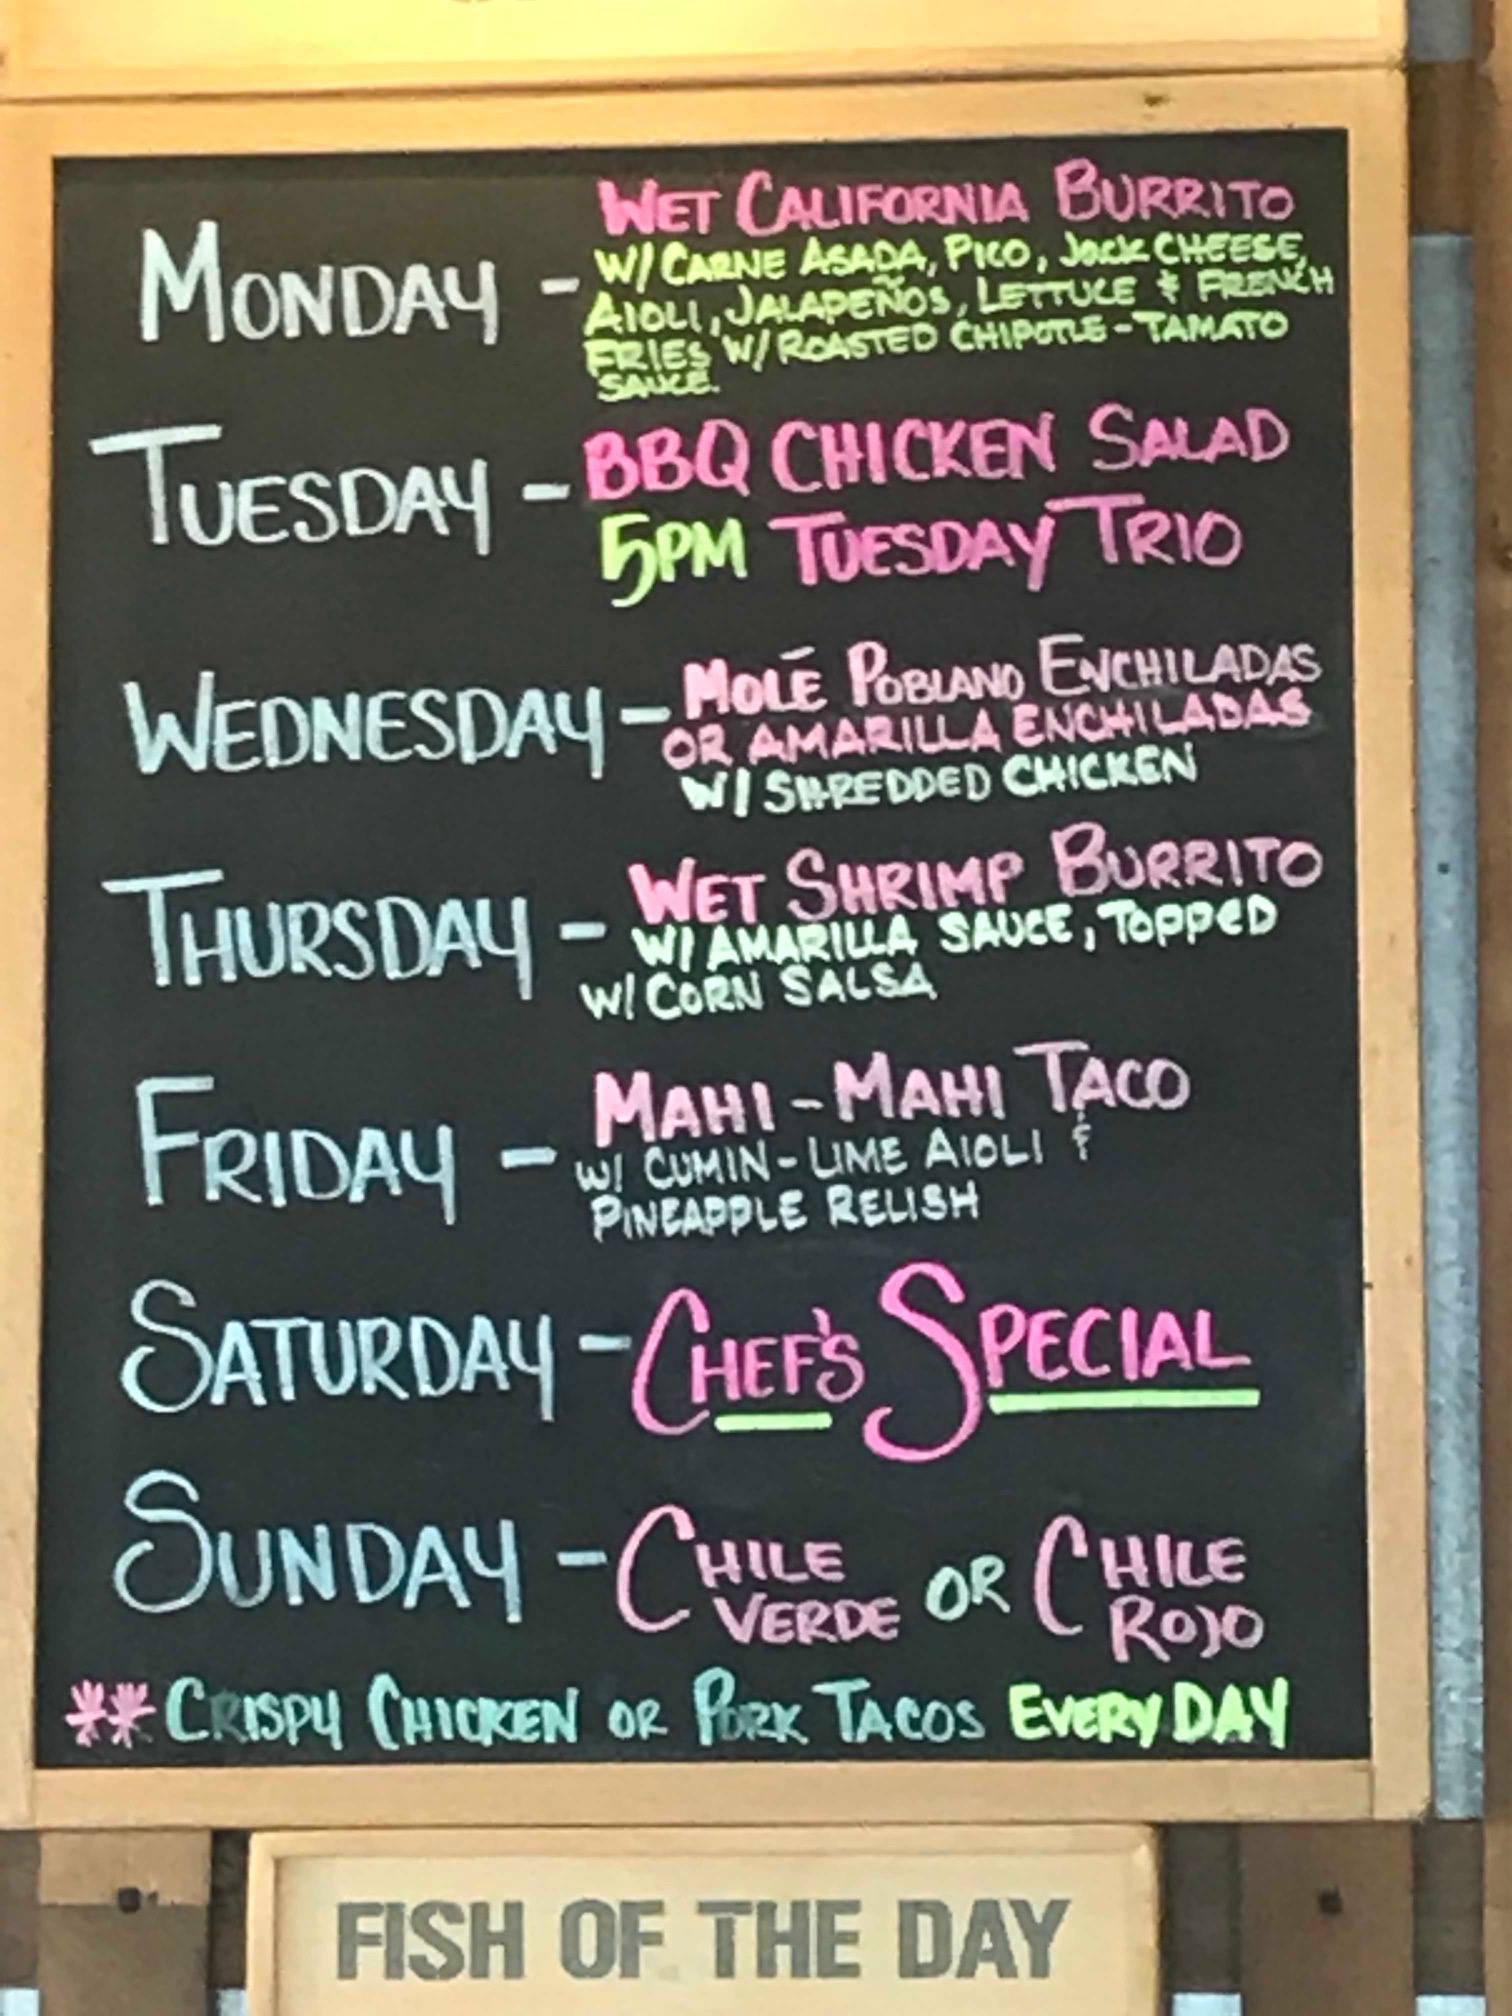 WET CALIFORNIA BURRITO
MONDAY - W/ CARNE ASADA, PICO, JACK CHEESE,
AIOLI, JALAPEÑOS, LETTUCE & FRENCH
FRIES W/ ROASTED CHIPOTLE-TAMATO
SAUCE.
TUESDAY - BBQ CHICKEN SALAD
5PM TUESDAY TRIO
WEDNESDAY - MOLÉ POBLANO ENCHILADAS
OR AMARILLA ENCHILADAS
W/ SHREDDED CHICKEN
THURSDAY - WET SHRIMP BURRITO
W/ AMARILLA SAUCE, TOPPED
W/ CORN SALSA
FRIDAY - MAHI-MAHI TACO
W/ CUMIN-LIME AIOLI &
PINEAPPLE RELISH
SATURDAY - CHEF'S SPECIAL
SUNDAY - CHILE VERDE OR CHILE ROJO
** CRISPY CHICKEN OR PORK TACOS EVERY DAY
FISH OF THE DAY